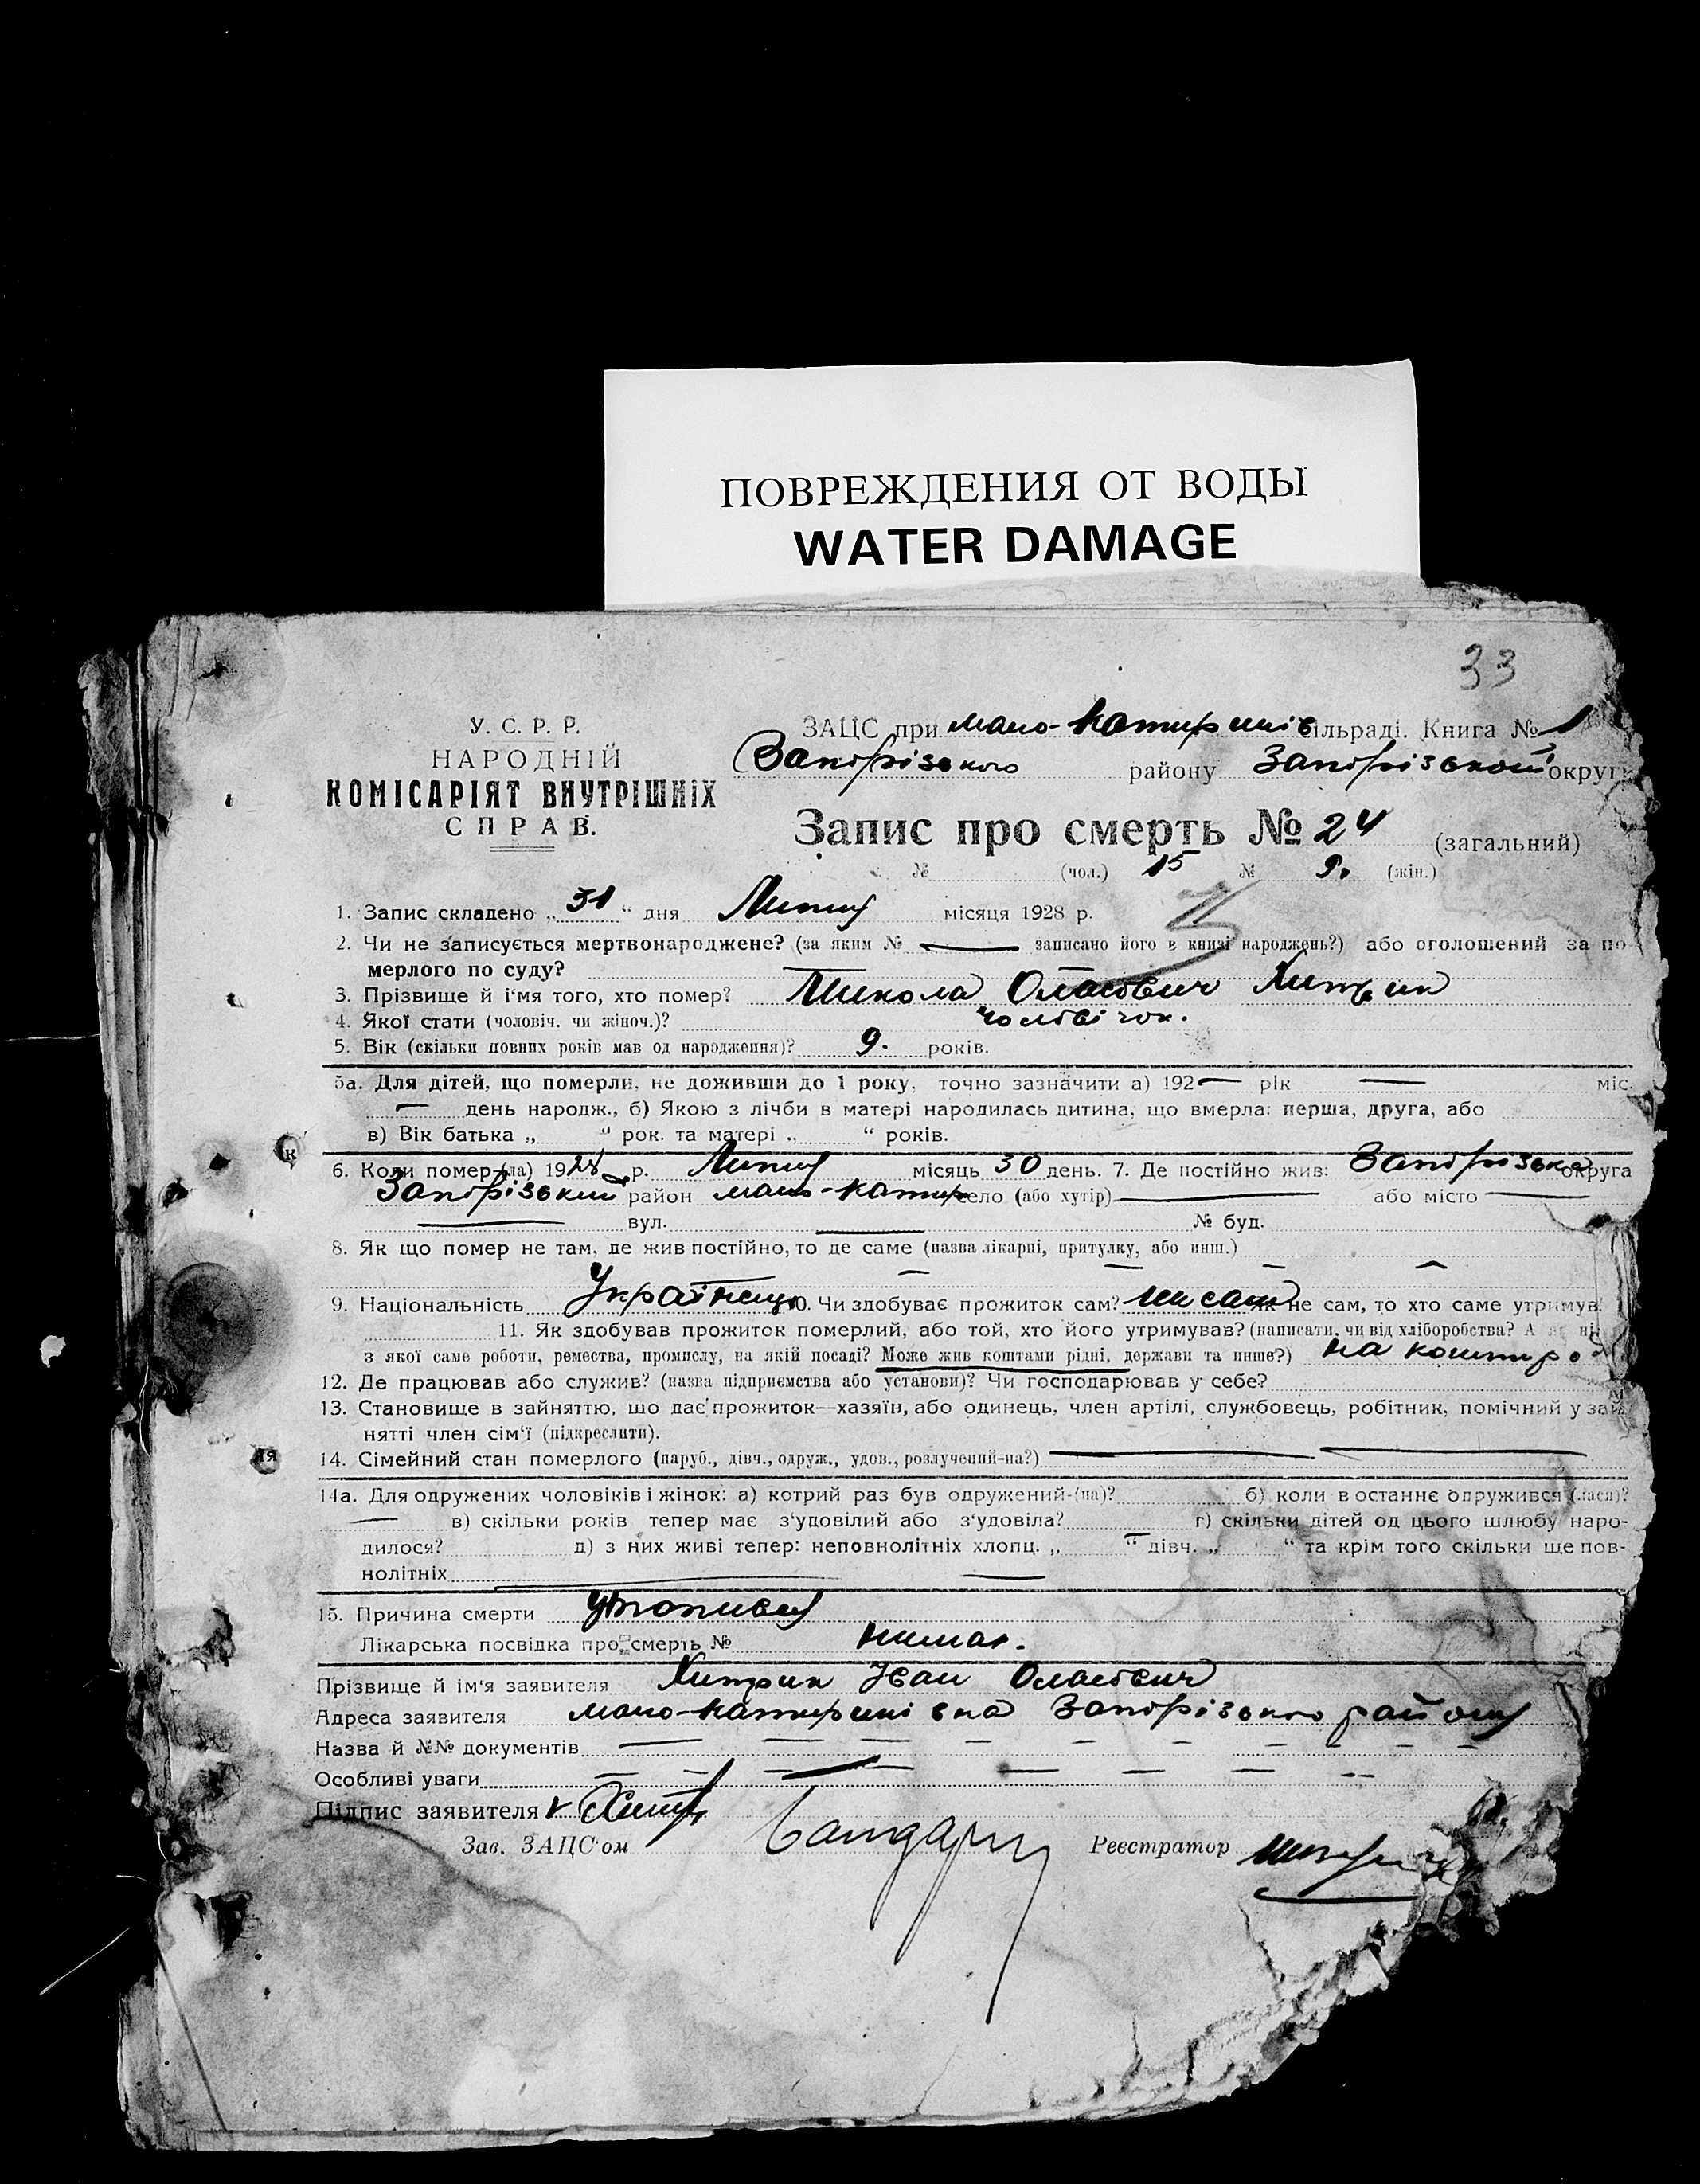 ПОВРЕЖДЕНИЯ ОТ ВОДЫ
WATER DAMAGE
33
У. С. Р. Р.
НАРОДНІЙ
КОМІСАРІЯТ ВНУТРІШНІХ
СПРАВ.
ЗАЦС при мало-катеринів сільраді. Книга № 1
Запорізького району Запорізької округи
Запис про смерть № 24 (загальний)
№ (чол.) 15 № 9. (жін.)
1. Запис складено „ 31 “ дня Липня місяця 1928 р.
2. Чи не записується мертвонароджене? (за яким № — записано його в книзі народжень?) або оголошений за по-
мерлого по суду? —
3. Прізвище й ім'я того, хто помер? Микола Хитрик
4. Якої стати (чоловіч. чи жіноч.)? чоловічок.
5. Вік (скільки повних років мав од народження)? 9. років.
5а. Для дітей, що померли, не доживши до 1 року, точно зазначити а) 192— рік — міс.
— день народж., б) Якою з лічби в матері народилась дитина, що вмерла: перша, друга, або
в) Вік батька „ “ рок. та матері „ “ років.
6. Коли помер-(ла) 1928 р. Липня місяць 30 день. 7. Де постійно жив: Запорізька округа
Запорізький район мало-катер село (або хутір) — або місто —
— вул. — № буд.
8. Як що помер не там, де жив постійно, то де саме (назва лікарні, притулку, або инш.)
— — — —
9. Національність Українець 10. Чи здобуває прожиток сам? не сам не сам, то хто саме утримув.
11. Як здобував прожиток померлий, або той, хто його утримував? (написати, чи від хліборобства? А як ні
з якої саме роботи, ремества, промислу, на якій посаді? Може жив коштами рідні, держави та инше?) на
12. Де працював або служив? (назва підприємства або установи)? Чи господарював у себе?
13. Становище в зайняттю, що дає прожиток—хазяїн, або одинець, член артілі, службовець, робітник, помічний у зай-
нятті член сім'ї (підкреслити).
14. Сімейний стан померлого (паруб., дівч., одруж., удов., розлучений-на?) — —
14а. Для одружених чоловіків і жінок: а) котрий раз був одружений-(на)? б) коли в останнє одружився (лася)?
— в) скільки років тепер має з'удовілий або з'удовіла? г) скільки дітей од цього шлюбу наро-
дилося? д) з них живі тепер: неповнолітніх хлопц. „ “ дівч. „ “ та крім того скільки ще пов-
нолітніх — —
15. Причина смерти утопився
Лікарська посвідка про смерть № немає.
Прізвище й ім'я заявителя Хитрик Іван
Адреса заявителя мало-катеринівка Запорізького району
Назва й №№ документів — — — — — — — — —
Особливі уваги — — — — — — — —
Підпис заявителя
Зав. ЗАЦС'ом Реєстратор